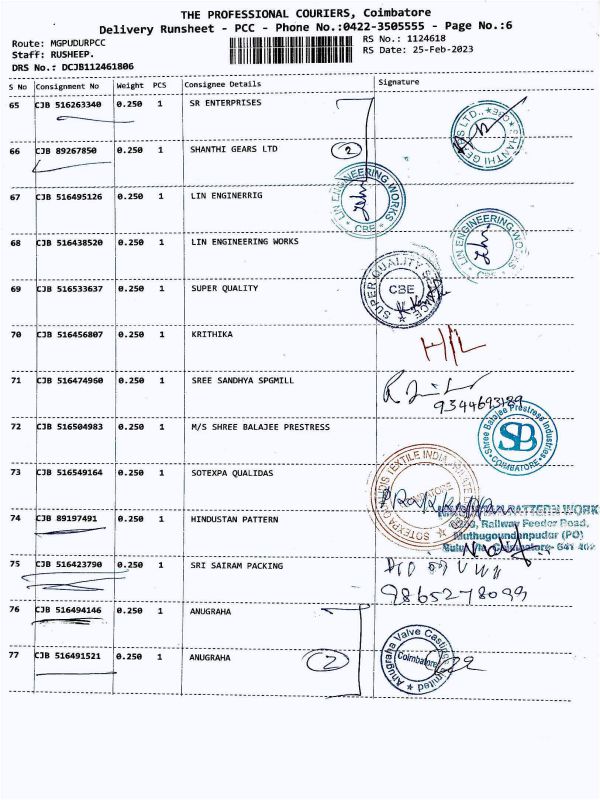 THE PROFESSIONAL COURIERS, Coimbatore
Delivery Runsheet - PCC - Phone No.:0422-3505555 - Page No.:6
Route: MGPUDURPCC
RS No.: 1124618
Staff: RUSHEEP.
RS Date: 25-Feb-2023
DRS No.: DCJB112461806
S No Consignment No Weight PCS Consignee Details Signature
65 CJB 516263340 0.250 1 SR ENTERPRISES
66 CJB 89267850 0.250 1 SHANTHI GEARS LTD 2
SHANTHI GEARS LTD., CBE
67 CJB 516495126 0.250 1 LIN ENGINERRIG
LIN ENGINEERING WORKS CBE
68 CJB 516438520 0.250 1 LIN ENGINEERING WORKS
LIN ENGINEERING WORKS CBE
69 CJB 516533637 0.250 1 SUPER QUALITY
SUPER QUALITY CBE
70 CJB 516456807 0.250 1 KRITHIKA
H/L
71 CJB 516474960 0.250 1 SREE SANDHYA SPGMILL
9344693189
72 CJB 516504983 0.250 1 M/S SHREE BALAJEE PRESTRESS
Shree Balajee Prestress Industries SB COIMBATORE
73 CJB 516549164 0.250 1 SOTEXPA QUALIDAS
SOTEXPA TEXTILE INDIA
74 CJB 89197491 0.250 1 HINDUSTAN PATTERN
WORK
Railway Feeder Road,
Muthugoundanpudur (PO)
Coimbatore- 641 402
75 CJB 516423790 0.250 1 SRI SAIRAM PACKING
9865278099
76 CJB 516494146 0.250 1 ANUGRAHA
77 CJB 516491521 0.250 1 ANUGRAHA 2
Anugraha Valve Castings Limited Coimbatore